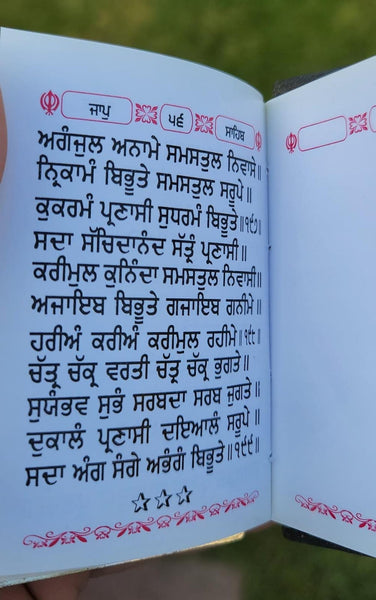 ਜਾਪੁ ੫੬ ਸਾਹਿਬ
ਅਗੰਜੁਲ ਅਨਾਮੇ ਸਮਸਤੁਲ ਨਿਵਾਸੇ॥
ਨ੍ਰਿਕਾਮੰ ਬਿਭੂਤੇ ਸਮਸਤੁਲ ਸਰੂਪੇ॥
ਕੁਕਰਮੰ ਪ੍ਰਣਾਸੀ ਸੁਧਰਮੰ ਬਿਭੂਤੇ॥੧੯੭॥
ਸਦਾ ਸੱਚਿਦਾਨੰਦ ਸੱਤ੍ਰੰ ਪ੍ਰਣਾਸੀ॥
ਕਰੀਮੁਲ ਕੁਨਿੰਦਾ ਸਮਸਤੁਲ ਨਿਵਾਸੀ॥
ਅਜਾਇਬ ਬਿਭੂਤੇ ਗਜਾਇਬ ਗਨੀਮੇ॥
ਹਰੀਅੰ ਕਰੀਅੰ ਕਰੀਮੁਲ ਰਹੀਮੇ॥੧੯੮॥
ਚੱਤ੍ਰ ਚੱਕ੍ਰ ਵਰਤੀ ਚੱਤ੍ਰ ਚੱਕ੍ਰ ਭੁਗਤੇ॥
ਸੁਯੰਭਵ ਸੁਭੰ ਸਰਬਦਾ ਸਰਬ ਜੁਗਤੇ॥
ਦੁਕਾਲੰ ਪ੍ਰਣਾਸੀ ਦਇਆਲੰ ਸਰੂਪੇ॥
ਸਦਾ ਅੰਗ ਸੰਗੇ ਅਭੰਗੰ ਬਿਭੂਤੇ॥੧੯੯॥